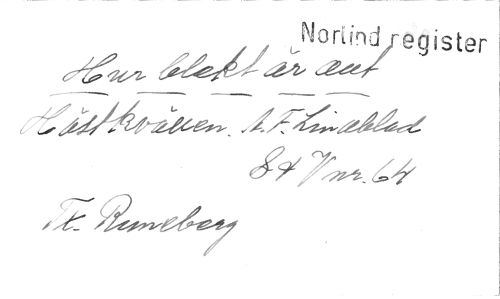 Norlind register
Hur blekt är allt
Höstkvällen. A. F. Lindblad
S & V nr. 64
Tx. Runeberg